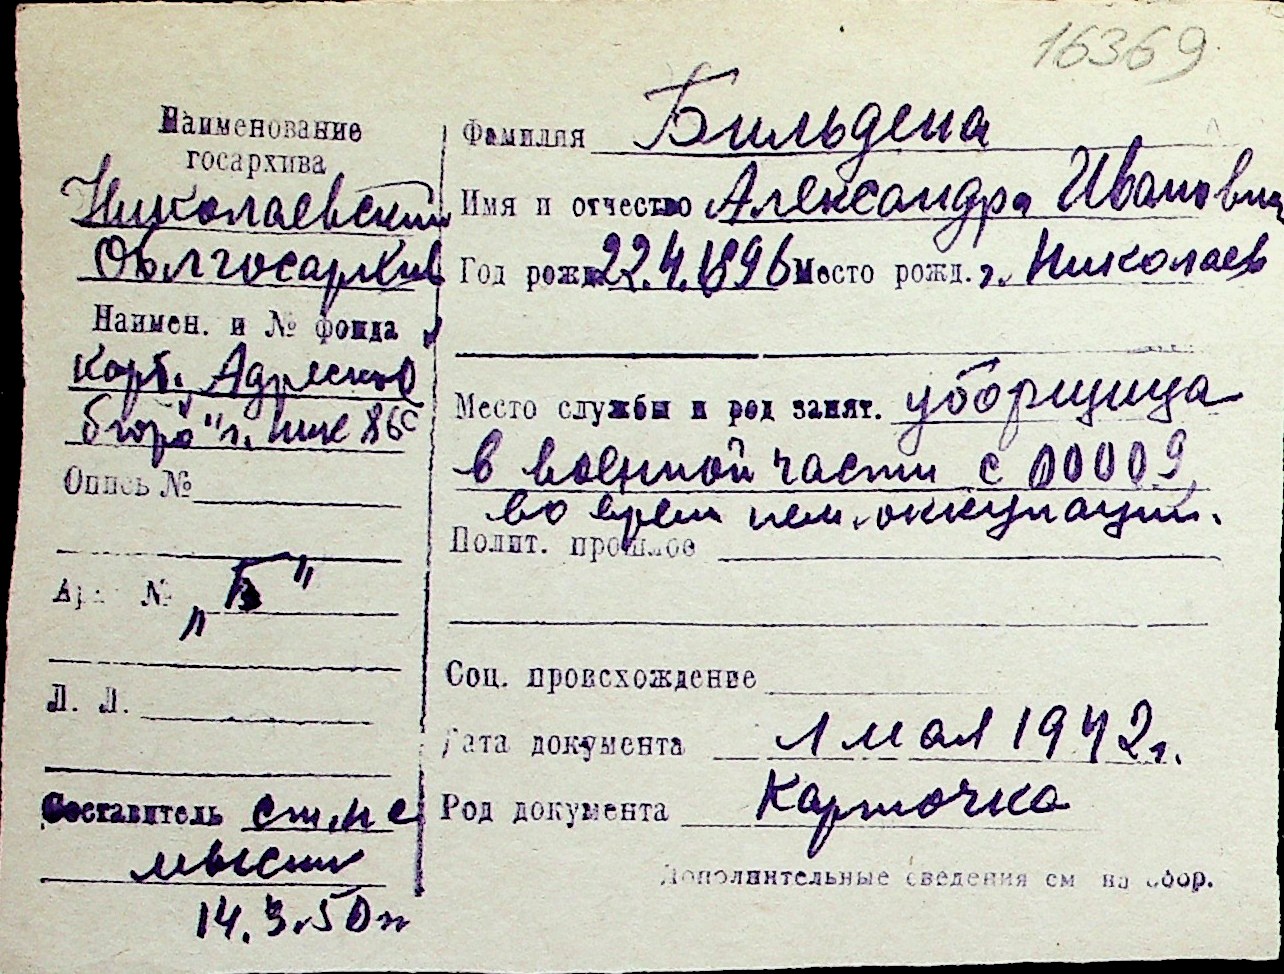 16369
Наименование
госархива
Николаевский
Облгосархив
Наимен. и № фонда
Адресное
бюро" г. Ник
Опись №
Арх. №
"Б"
Л. Л.
Составитель ст. н с
14.3.50 г
Фамилия Бильдена
Имя и отчество Александра Ивановна
Год рожд. 22.4.1896 Место рожд. г. Николаев
Место службы и род занят. уборщица
в военной части с 00009
во врем нем. оккупации.
Полит. прошлое
Соц. происхождение
Дата документа 1 мая 1942 г.
Род документа Карточка
Дополнительные сведения см на обор.